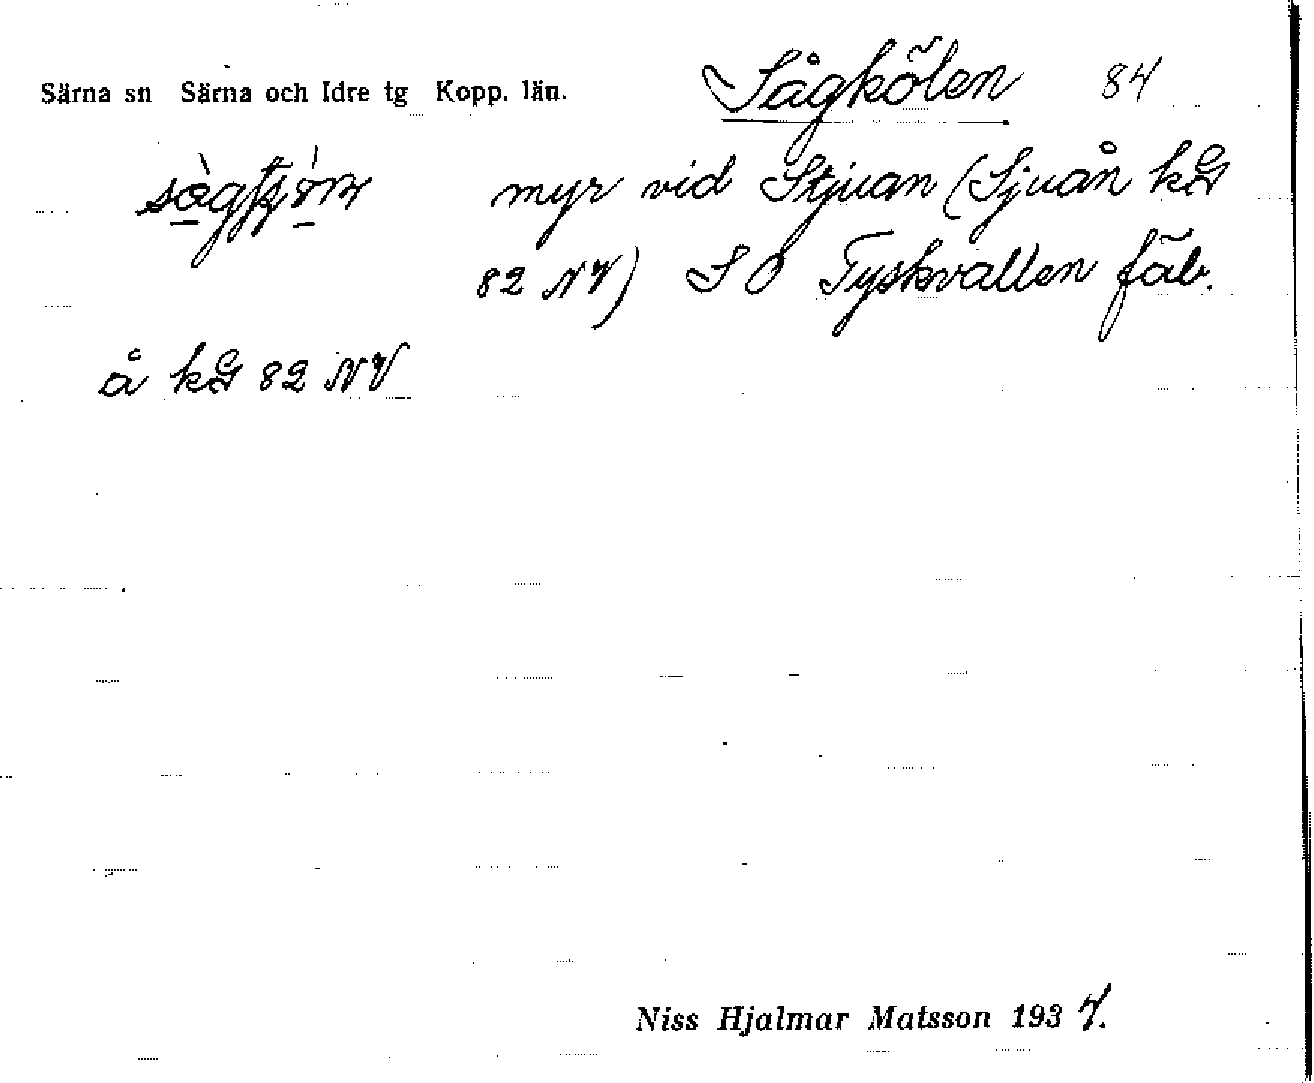 Särna sn Särna och Idre tg Kopp. län. Sågkölen 84
myr vid Stjuan (Sjuån kG
82 NV) SO Tyskvallen fäb.
å kG 82 NV
Niss Hjalmar Matsson 1937.